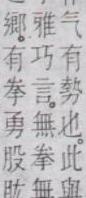 气有勢也。此與
雅巧言。無拳無
鄉。有拳勇股肱